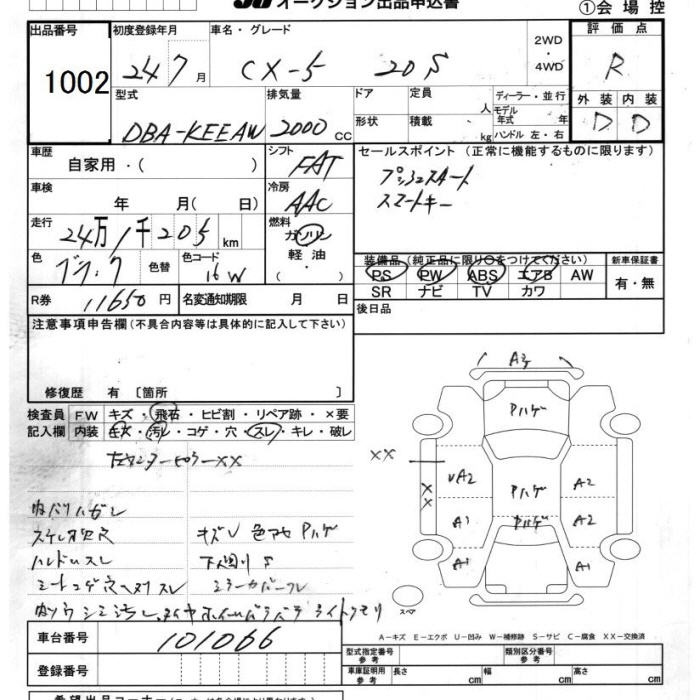 オークション出品申込書 ①会場控
出品番号 初度登録年月 車名・グレード 2WD・4WD 評価点
1002 24 7月 CX-5 20S R
型式 排気量 ドア 定員 人 ディーラー・並行 外装 内装
DBA-KEEAW 2000cc 形状 積載 kg モデル年式 年 ハンドル 左・右 D D
車歴 自家用・( ) シフト FAT セールスポイント(正常に機能するものに限ります)
車検 年 月( 日) 冷房 AAC プッシュスタート
スマートキー
走行 24万1千205km 燃料 ガソリン
軽油・
( )
色 ブラック 色替 色コード 16W 装備品(純正品に限り○をつけてください) 新車保証書
PS PW ABS エアB AW 有・無
SR ナビ TV カワ
R券 11650円 名変通知期限 月 日 後日品
注意事項申告欄(不具合内容等は具体的に記入して下さい)
修復歴 有 〔箇所 〕
検査員 FW キズ・飛石・ヒビ割・リペア跡・×要
記入欄 内装 キズ・汚レ・コゲ・穴・スレ・キレ・破レ
左センターピラーXX
内バリハガレ
ステレオ欠 キズU 色アセ Pハゲ
ハンドルスレ 下回りS
シートコゲ穴ヘタリスレ ミラーカバーフレ
ライトクモリ
A3
Pハゲ
XX
UA2 XX Pハゲ A2
A1 Pハゲ A2
A1 A1
スペア
A-キズ E-エクボ U-凹み W-補修跡 S-サビ C-腐食 XX-交換済
車台番号 101066 型式指定番号 参考 類別区分番号 参考
登録番号 車庫証明用 参考 長さ cm 幅 cm 高さ cm
希望出品コーナー